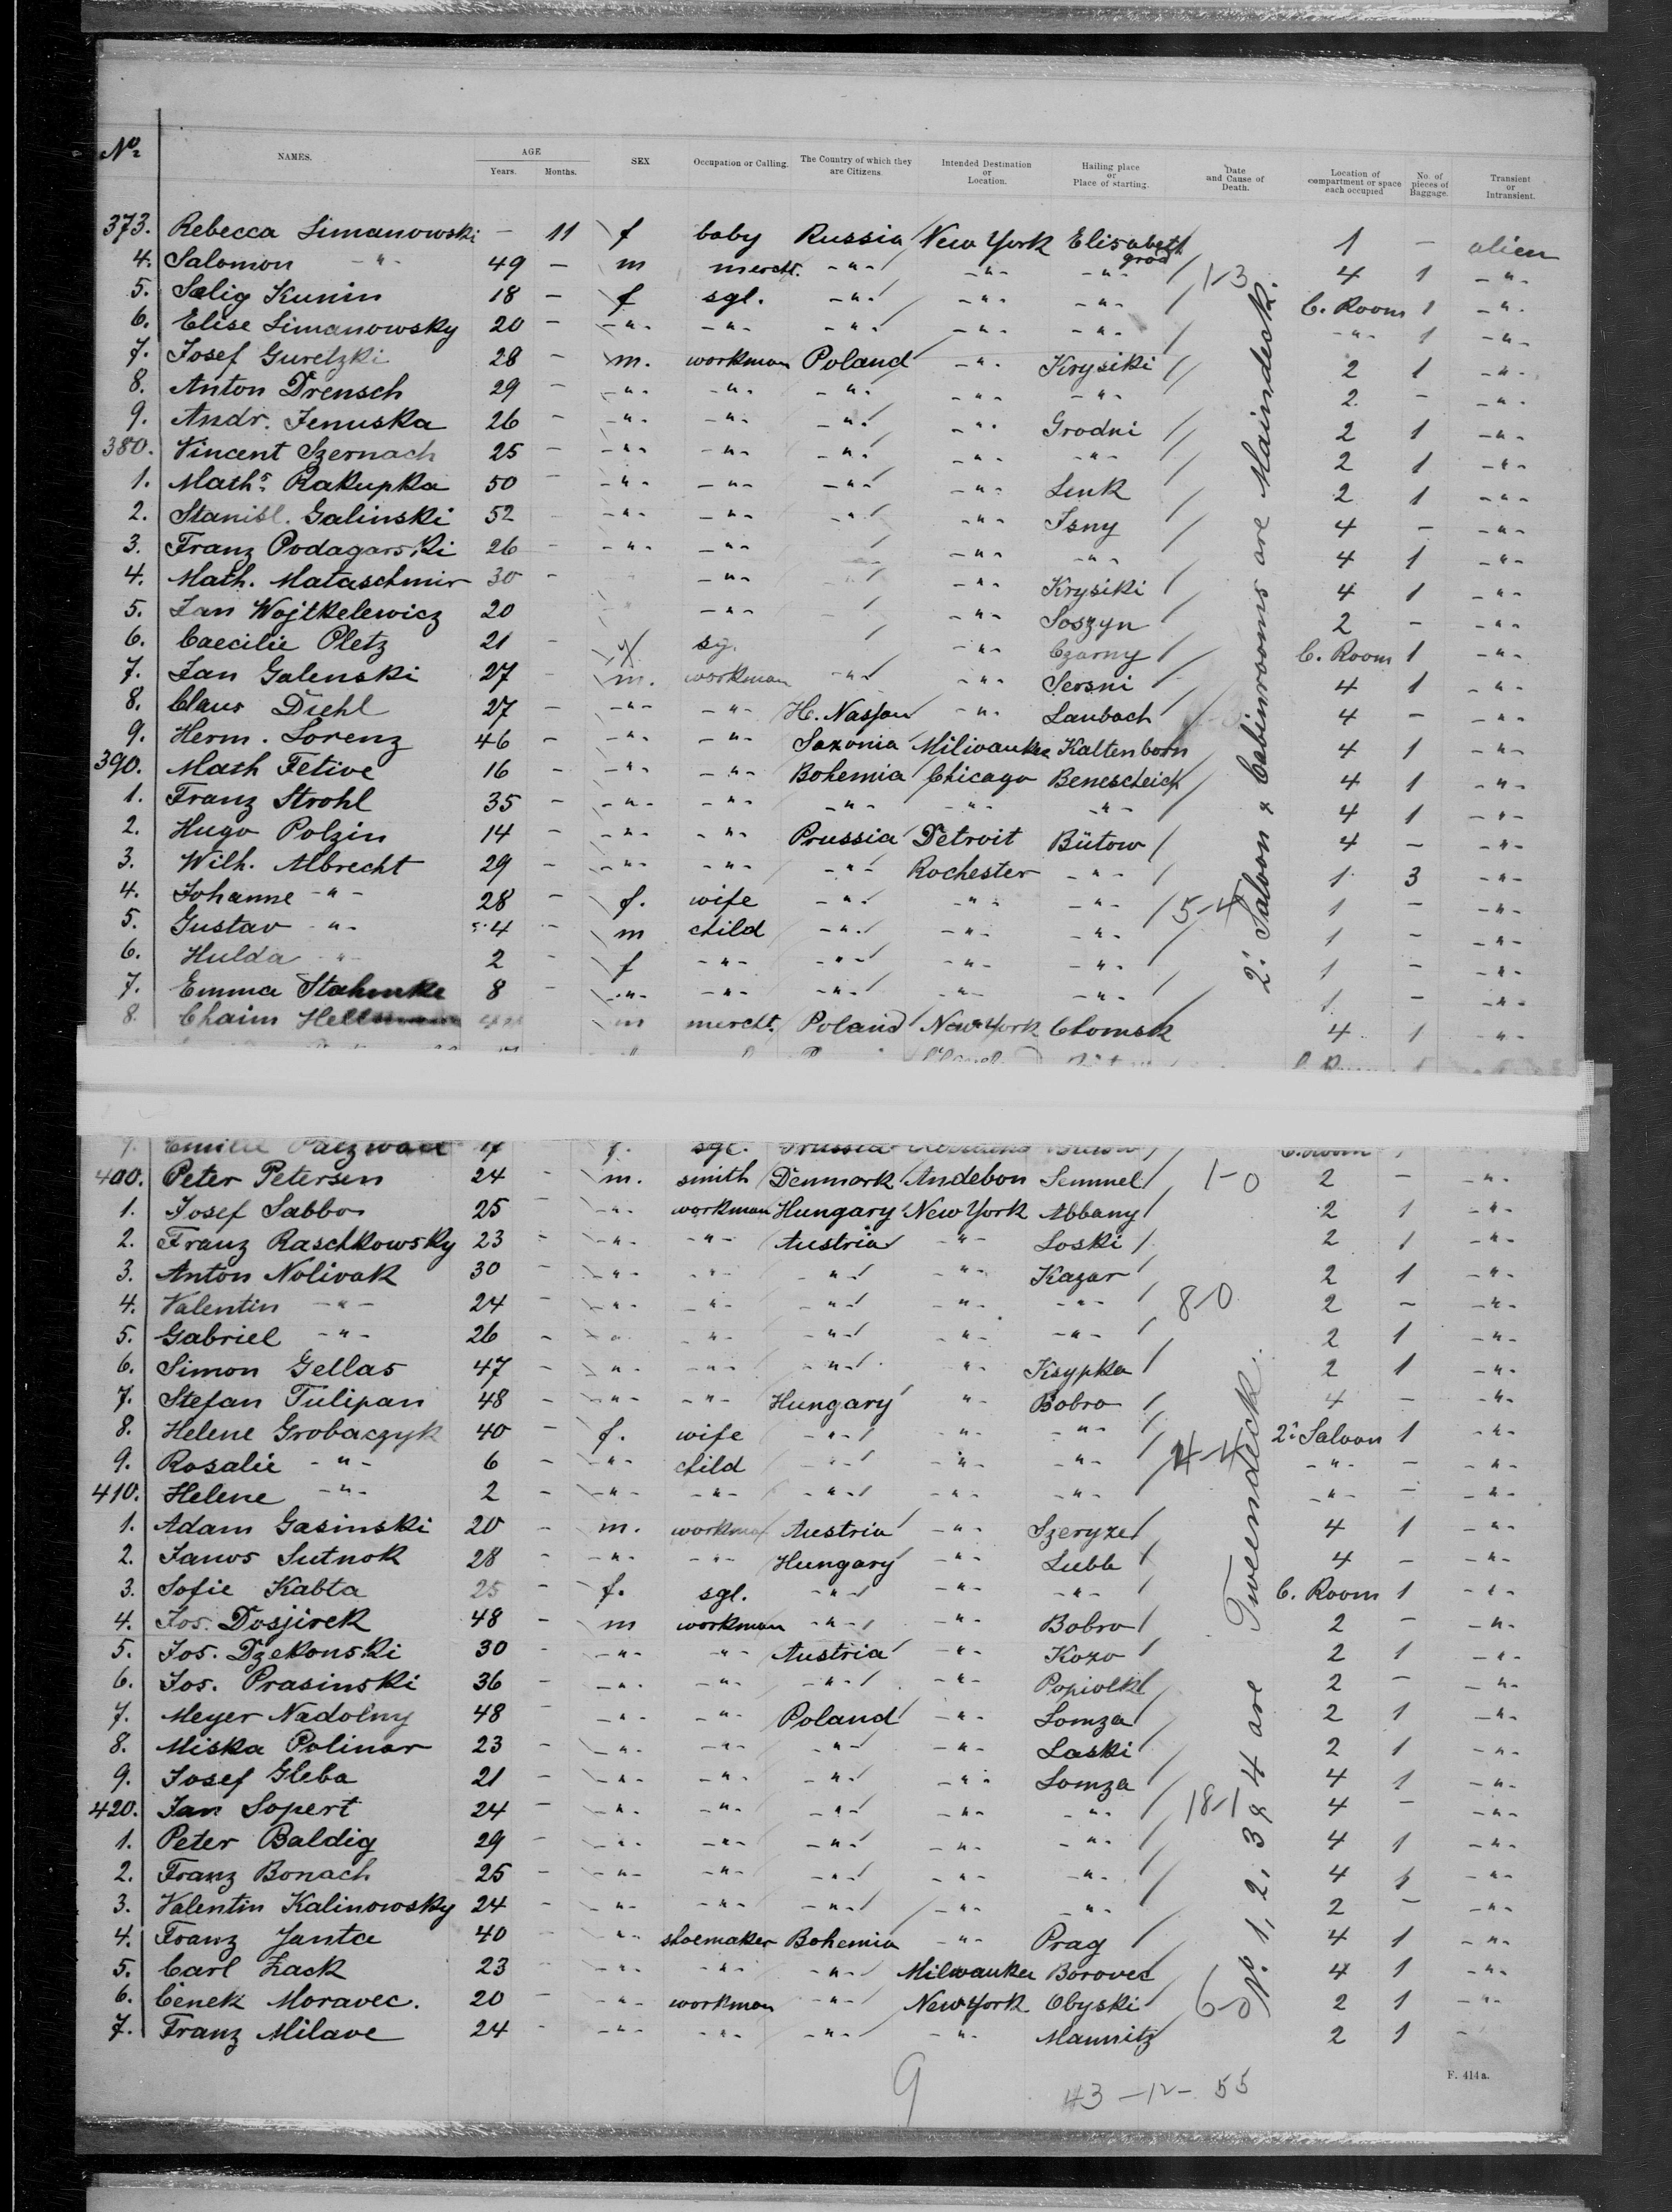 No. NAMES. AGE Years. Months. SEX Occupation or Calling. The Country of which they are Citizens. Intended Destination or Location. Hailing place or Place of starting. Date and Cause of Death. Location of compartment or space each occupied No. of pieces of Baggage. Transient or Intransient.
373. Rebecca Simanowski - 11 f baby Russia New York Elisabethgrod 1 - alien
4. Salomon -"- 49 - m mercht. -"- -"- -"- 1-3 4 1 -"-
5. Selig Kunin 18 - f sgl. -"- -"- -"- C. Room 1 -"-
6. Elise Simanowsky 20 - -"- -"- -"- -"- -"- -"- 1 -"-
7. Josef Guretzki 28 - m. workman Poland -"- Krysiki 2 1 -"-
8. Anton Drensch 29 - -"- -"- -"- -"- -"- 2 - -"-
9. Andr. Jenuska 26 - -"- -"- -"- -"- Grodni 2 1 -"-
380. Vincent Szernach 25 - -"- -"- -"- -"- -"- 2 1 -"-
1. Maths. Rakupka 50 - -"- -"- -"- -"- Senk 2 1 -"-
2. Stanisl. Galinski 52 -"- -"- -"- -"- Isny 4 - -"-
3. Franz Podagarski 26 - -"- -"- -"- -"- 4 1 -"-
4. Math. Mataschmir 30 - -"- -"- Krysiki 4 1 -"-
5. Jan Wojtkelewicz 20 -"- -"- Soszyn 2 - -"-
6. Caecilie Pletz 21 - f sg. -"- Czarny C. Room 1 -"-
7. Jan Galenski 27 - m. workman -"- -"- Sersni 4 1 -"-
8. Claus Diehl 27 - -"- -"- H. Nassau -"- Laubach 4 - -"-
9. Herm. Lorenz 46 - -"- -"- Saxonia Milwaukee Kaltenborn 4 1 -"-
390. Math Fetive 16 - -"- -"- Bohemia Chicago Benescheich 4 1 -"-
1. Franz Strohl 35 - -"- -"- -"- -"- -"- 4 1 -"-
2. Hugo Polzin 14 - -"- -"- Prussia Detroit Bütow 4 - -"-
3. Wilh. Albrecht 29 - -"- -"- -"- Rochester -"- 1 3 -"-
4. Johanne -"- 28 - f. wife -"- -"- -"- 5-4 1 - -"-
5. Gustav -"- 4 - m child -"- -"- -"- 1 - -"-
6. Hulda -"- 2 - f -"- -"- -"- -"- 1 - -"-
7. Emma Stahnke 8 - -"- -"- -"- -"- -"- 1 - -"-
8. Chaim m mercht. Poland New York Chomsk 4 1 -"-
2. Saloon & Cabinrooms are Maindeck.
9. Emilie 17 f. sgl. Prussia C. Room 1
400. Peter Petersen 24 - m. smith Denmark Andebon Semmel 1-0 2 - -"-
1. Josef Sabbo 25 - -"- workman Hungary New York Abbany 2 1 -"-
2. Franz Raschkowsky 23 - -"- -"- Austria -"- Loski 2 1 -"-
3. Anton Nolivak 30 - -"- -"- -"- -"- Kazar 2 1 -"-
4. Valentin -"- 24 - -"- -"- -"- -"- -"- 8-0 2 - -"-
5. Gabriel -"- 26 - -"- -"- -"- -"- -"- 2 1 -"-
6. Simon Gellas 47 - -"- -"- -"- -"- Ksypka 2 1 -"-
7. Stefan Tulipan 48 - -"- -"- Hungary -"- Bobro 4 - -"-
8. Helene Grobaczyk 40 - f. wife -"- -"- -"- 2. Saloon 1 -"-
9. Rosalie -"- 6 - -"- child -"- -"- -"- 4-4 -"- - -"-
410. Helene -"- 2 - -"- -"- -"- -"- -"- -"- - -"-
1. Adam Gasinski 20 - m. workman Austria -"- Szeryze 4 1 -"-
2. Janos Sutnok 28 - -"- -"- Hungary -"- Lubb 4 - -"-
3. Sofie Kabta 25 - f. sgl. -"- -"- -"- C. Room 1 -"-
4. Jos. Dosjirek 48 - m workman -"- -"- Bobro 2 - -"-
5. Jos. Dzekonski 30 - -"- -"- Austria -"- Kozo 2 1 -"-
6. Jos. Prasinski 36 - -"- -"- -"- -"- Popiolk 2 - -"-
7. Meyer Nadolny 48 -"- -"- Poland -"- Lomza 2 1 -"-
8. Miska Polinar 23 - -"- -"- -"- -"- Laski 2 1 -"-
9. Josef Gleba 21 - -"- -"- -"- -"- Lomza 4 1 -"-
420. Jan Sopert 24 - -"- -"- -"- -"- -"- 18-1 4 - -"-
1. Peter Baldig 29 - -"- -"- -"- -"- -"- 4 1 -"-
2. Franz Bonach 25 - -"- -"- -"- -"- -"- 4 1 -"-
3. Valentin Kalinowsky 24 - -"- -"- -"- -"- -"- 2 - -"-
4. Franz Janta 40 - -"- shoemaker Bohemia -"- Prag 4 1 -"-
5. Carl Zack 23 - -"- -"- -"- Milwaukee Borovec 4 1 -"-
6. Cenek Moravec. 20 - -"- workman -"- New York Obyski 6-0 2 1 -"-
7. Franz Milave 24 - -"- -"- -"- -"- Mannitz 2 1 -
No 1, 2, 3 & 4 are Tweendeck.
9 43-12-55
F. 414a.